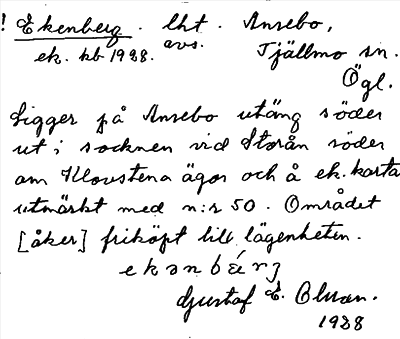 ! Ekenberg. lht. Ansebo,
ek. kb 1928. avs. Tjällmo sn.
Ögl.
Ligger på Ansebo utäng söder
ut i socknen vid Storån söder
om Klovstena ägor och å ek. karta
utmärkt med n:r 50. Området
[åker] friköpt till lägenheten.
ekənbárj
Gustaf E. Olsson.
1928